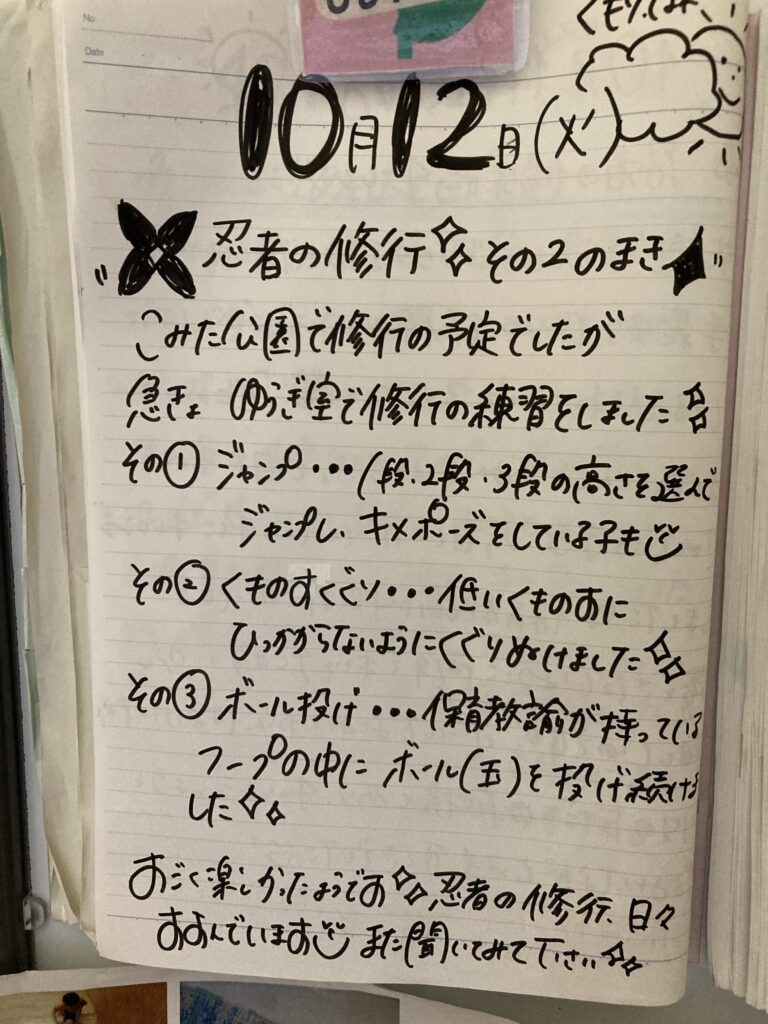 No.
Date
10月12日(火)
忍者の修行 その2のまき
こみた公園で修行の予定でしたが
急きょ ゆうぎ室で修行の練習をしました
その① ジャンプ・・・1段・2段・3段の高さを選んで
ジャンプし、キメポーズをしている子も
その② くものすくぐり・・・低いくものすに
ひっかからないようにくぐりぬけました
その③ ボール投げ・・・保育教諭が持っている
フープの中に ボール(玉)を投げ続けま
した
すごく楽しかったようです 忍者の修行、日々
すすんでいます また聞いてみて下さい